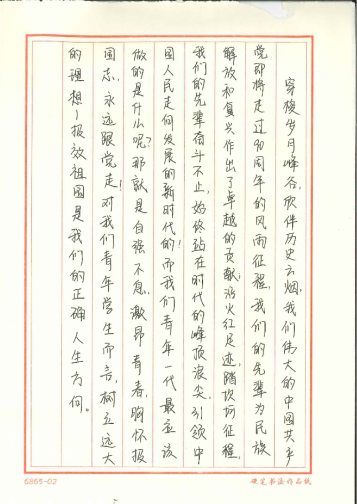 穿梭岁月峰谷,欣伴历史云烟,我们伟大的中国共产
党即将走过90周年的风雨征程,我们的先辈为民族
解放和复兴作出了卓越的贡献;沿火红足迹,踏坎坷征程,
我们的先辈奋斗不止,始终站在时代的峰顶浪尖,引领中
国人民走向发展的新时代的!而我们青年一代最应该
做的是什么呢?那就是自强不息,激昂青春,胸怀报
国志,永远跟党走!对我们青年学生而言,树立远大
的理想,报效祖国是我们的正确人生方向。
6865-02
硬笔书法作品纸